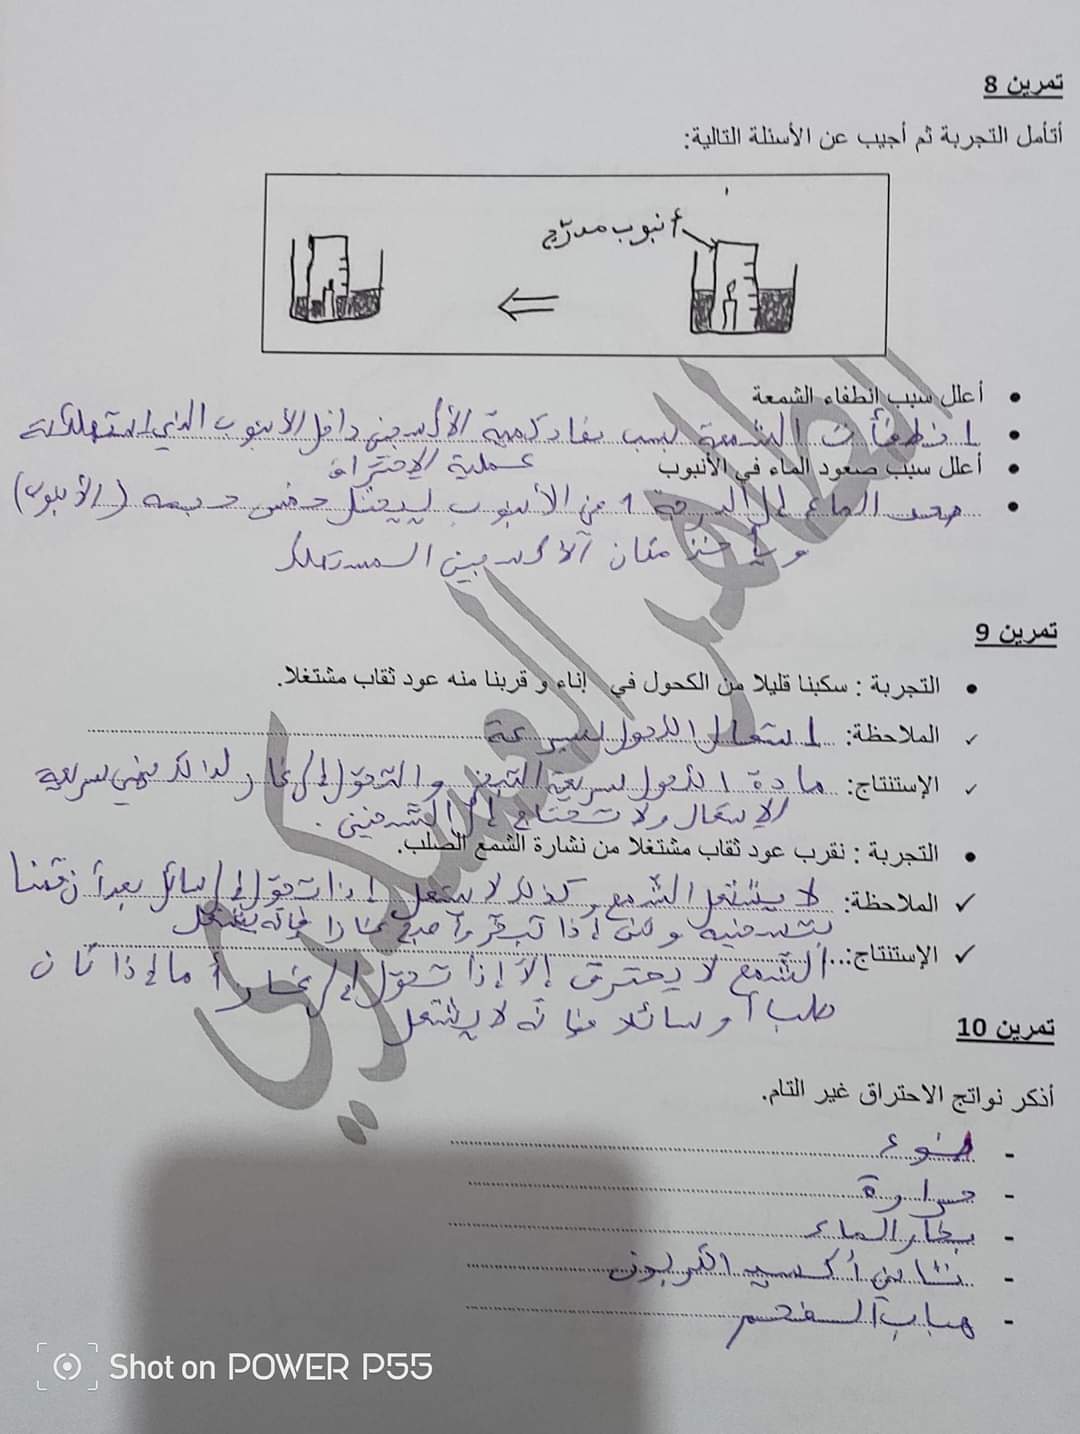 تمرين 8
أتأمل التجربة ثم أجيب عن الأسئلة التالية:
أنبوب مدرّج
أعلل سبب إنطفاء الشمعة
انطفأت الشمعة بسبب نفاد كمية الأكسجين داخل الأنبوب الذي استهلكته
عملية الاحتراق
أعلل سبب صعود الماء في الأنبوب
صعد الماء إلى الدرجة 1 من الأنبوب ليحتل خمس حجمه (الأنبوب)
و يأخذ مكان الأكسجين المستهلك
تمرين 9
التجربة : سكبنا قليلا من الكحول في إناء و قربنا منه عود ثقاب مشتغلا.
الملاحظة: اشتعال الكحول بسرعة
الإستنتاج: مادة الكحول سريعة التبخر والتحوّل إلى غاز لذلك فهي سريعة
الاشتعال ولا تحتاج إلى التسخين.
التجربة : نقرب عود ثقاب مشتغلا من نشارة الشمع الصلب.
الملاحظة: لا يشتعل الشمع وكذلك لا يشتعل إذا تحوّل إلى سائل بعد أن قمنا
بتسخينه ولكن إذا تبخّر وأصبح غازا فإنه يشتعل
الإستنتاج:... الشمع لا يحترق إلاّ إذا تحوّل إلى غاز أما إذا كان
صلبا أو سائلا فإنه لا يشتعل
تمرين 10
أذكر نواتج الاحتراق غير التام.
- ضوء
- حرارة
- بخار الماء
- ثاني أكسيد الكربون
- هباب الفحم
الطاهر العسكري
Shot on POWER P55